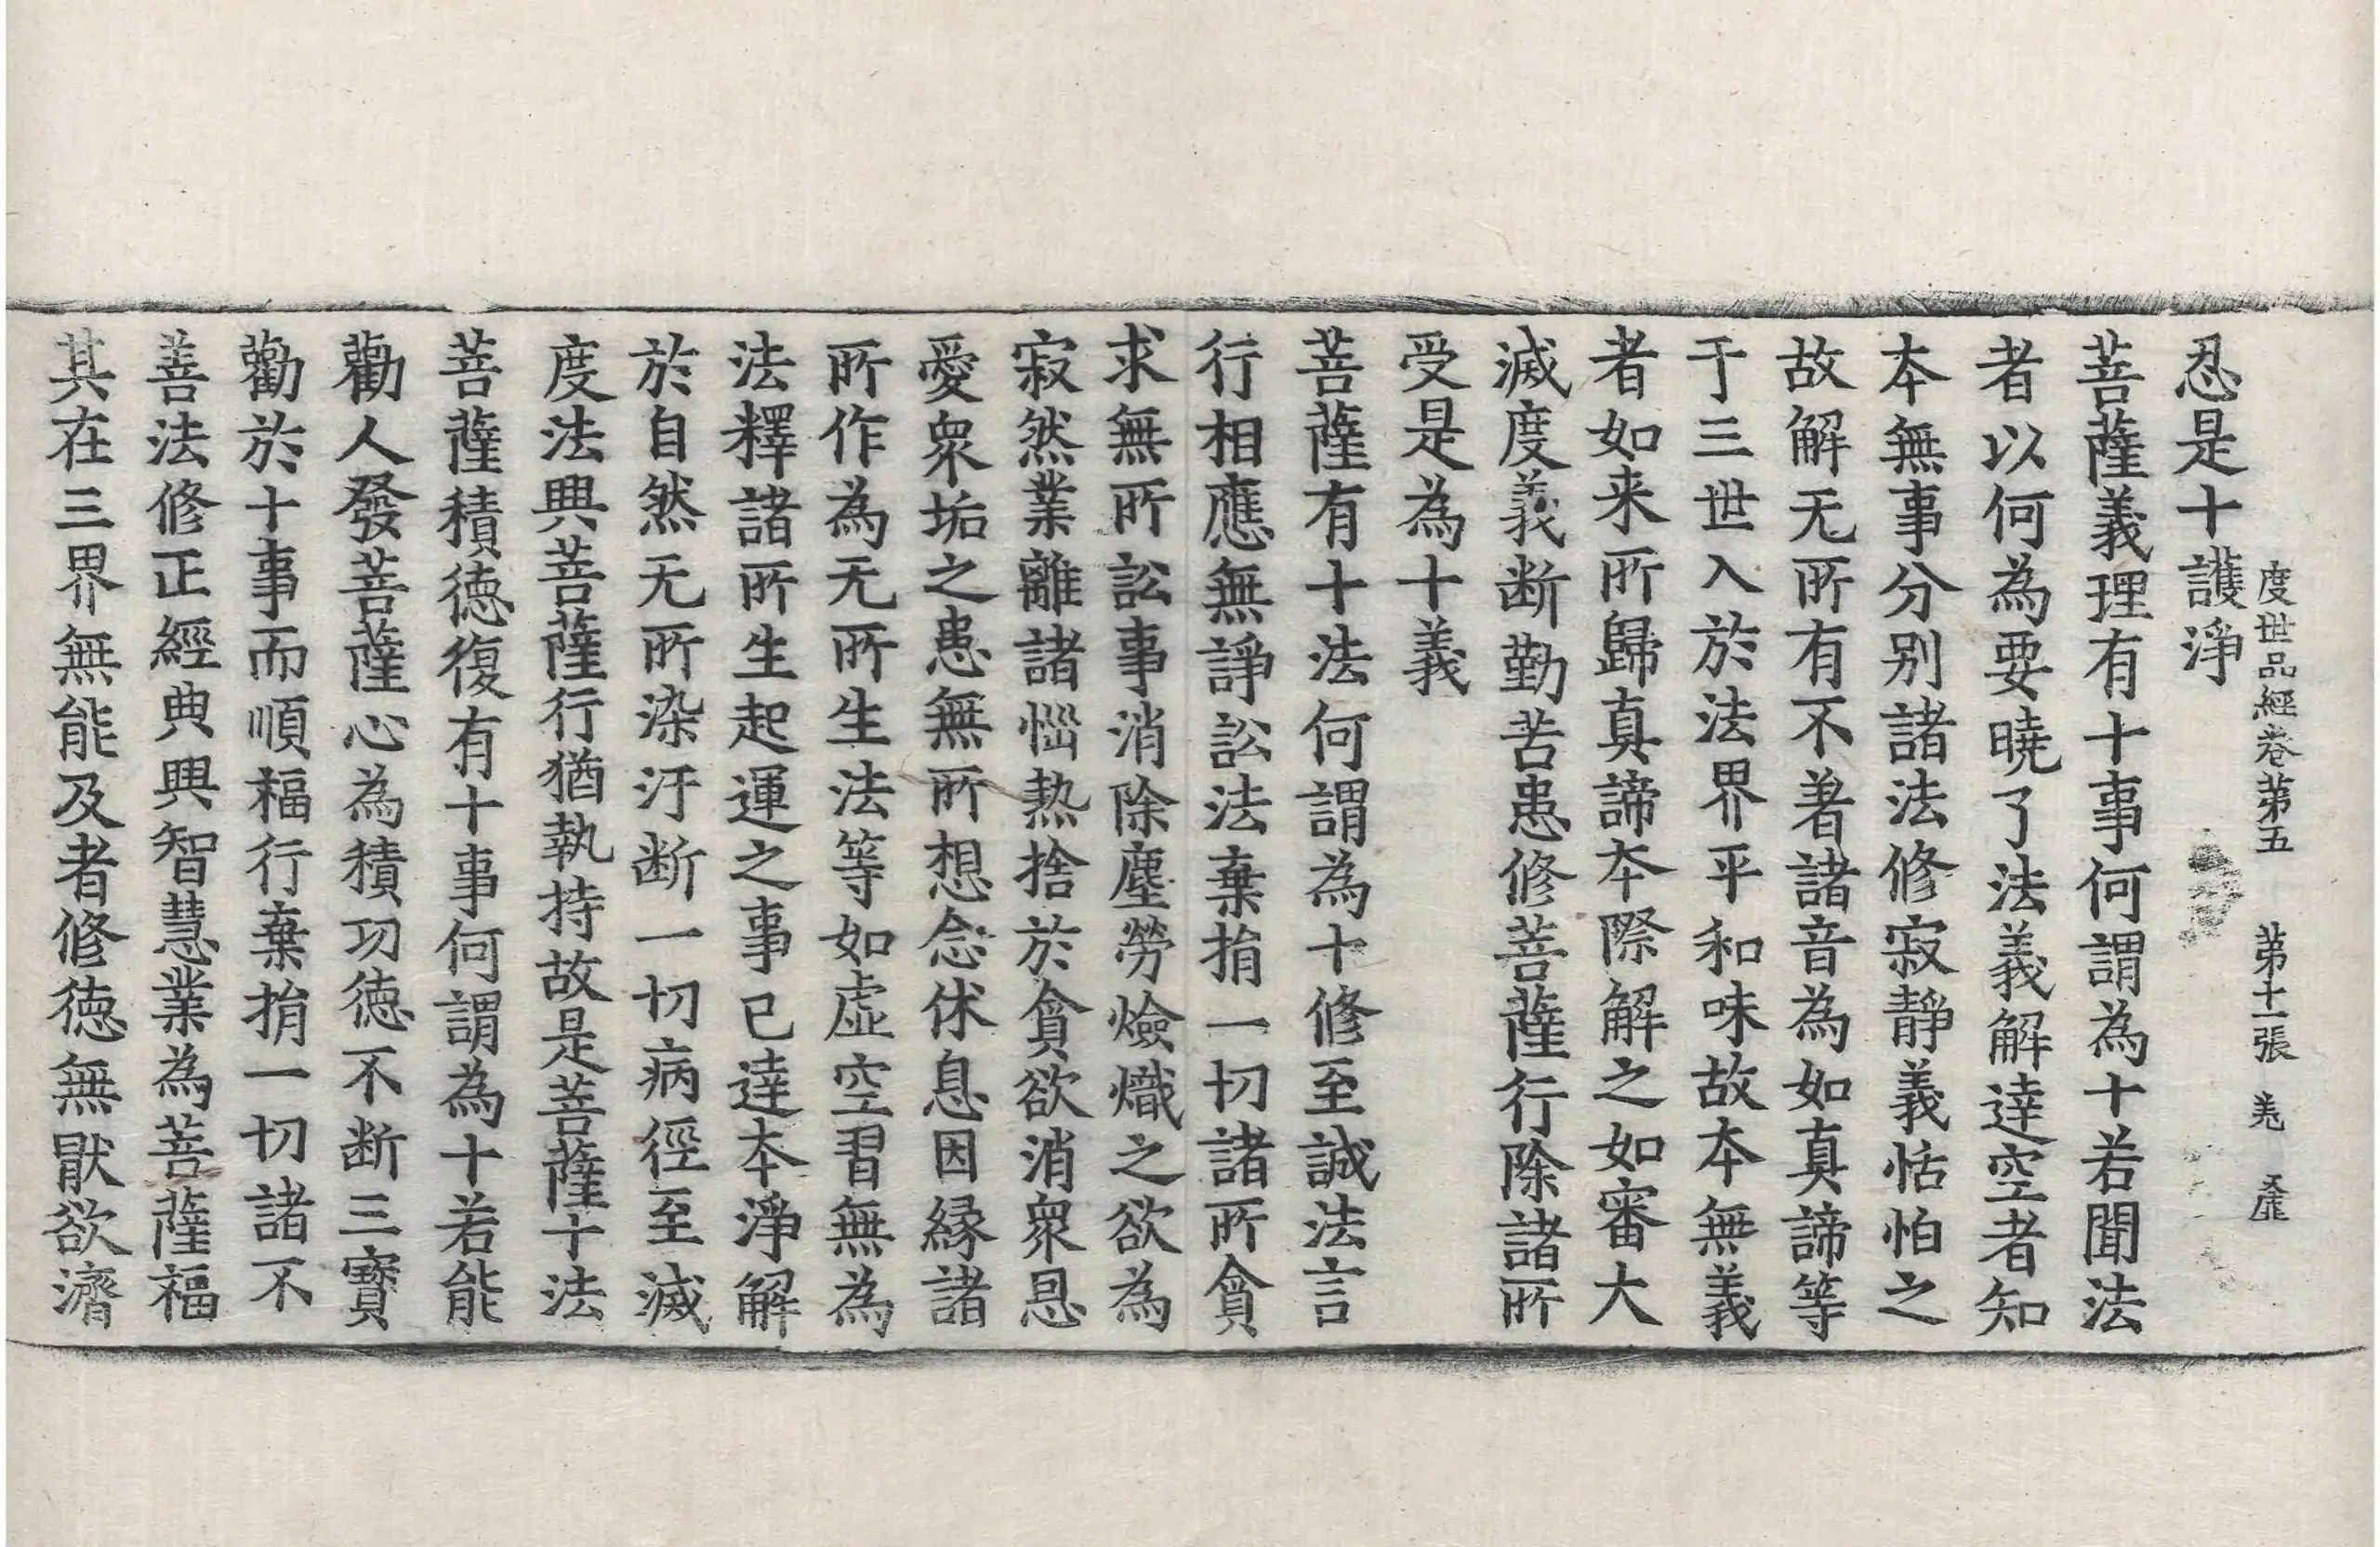 度世品經卷第五 第十一張 羗
忍是十護淨
菩薩義理有十事何謂為十若聞法
者以何為要曉了法義解達空者知
本無事分別諸法修寂靜義恬怕之
故解无所有不著諸音為如真諦等
于三世入於法界平和味故本無義
者如来所歸真諦本際解之如審大
滅度義断勤苦患修菩薩行除諸所
受是為十義
菩薩有十法何謂為十修至誠法言
行相應無諍訟法棄捐一切諸所貪
求無所訟事消除塵勞燄熾之欲為
寂然業離諸惱熱捨於貪欲消衆恩
愛衆垢之患無所想念休息因緣諸
所作為无所生法等如虛空習無為
法釋諸所生起運之事已達本淨解
於自然无所染汙断一切病徑至滅
度法興菩薩行猶執持故是菩薩十法
菩薩積德復有十事何謂為十若能
勸人發菩薩心為積功德不断三寶
勸於十事而順福行棄捐一切諸不
善法修正經典興智慧業為菩薩福
其在三界無能及者修德無猒欲濟